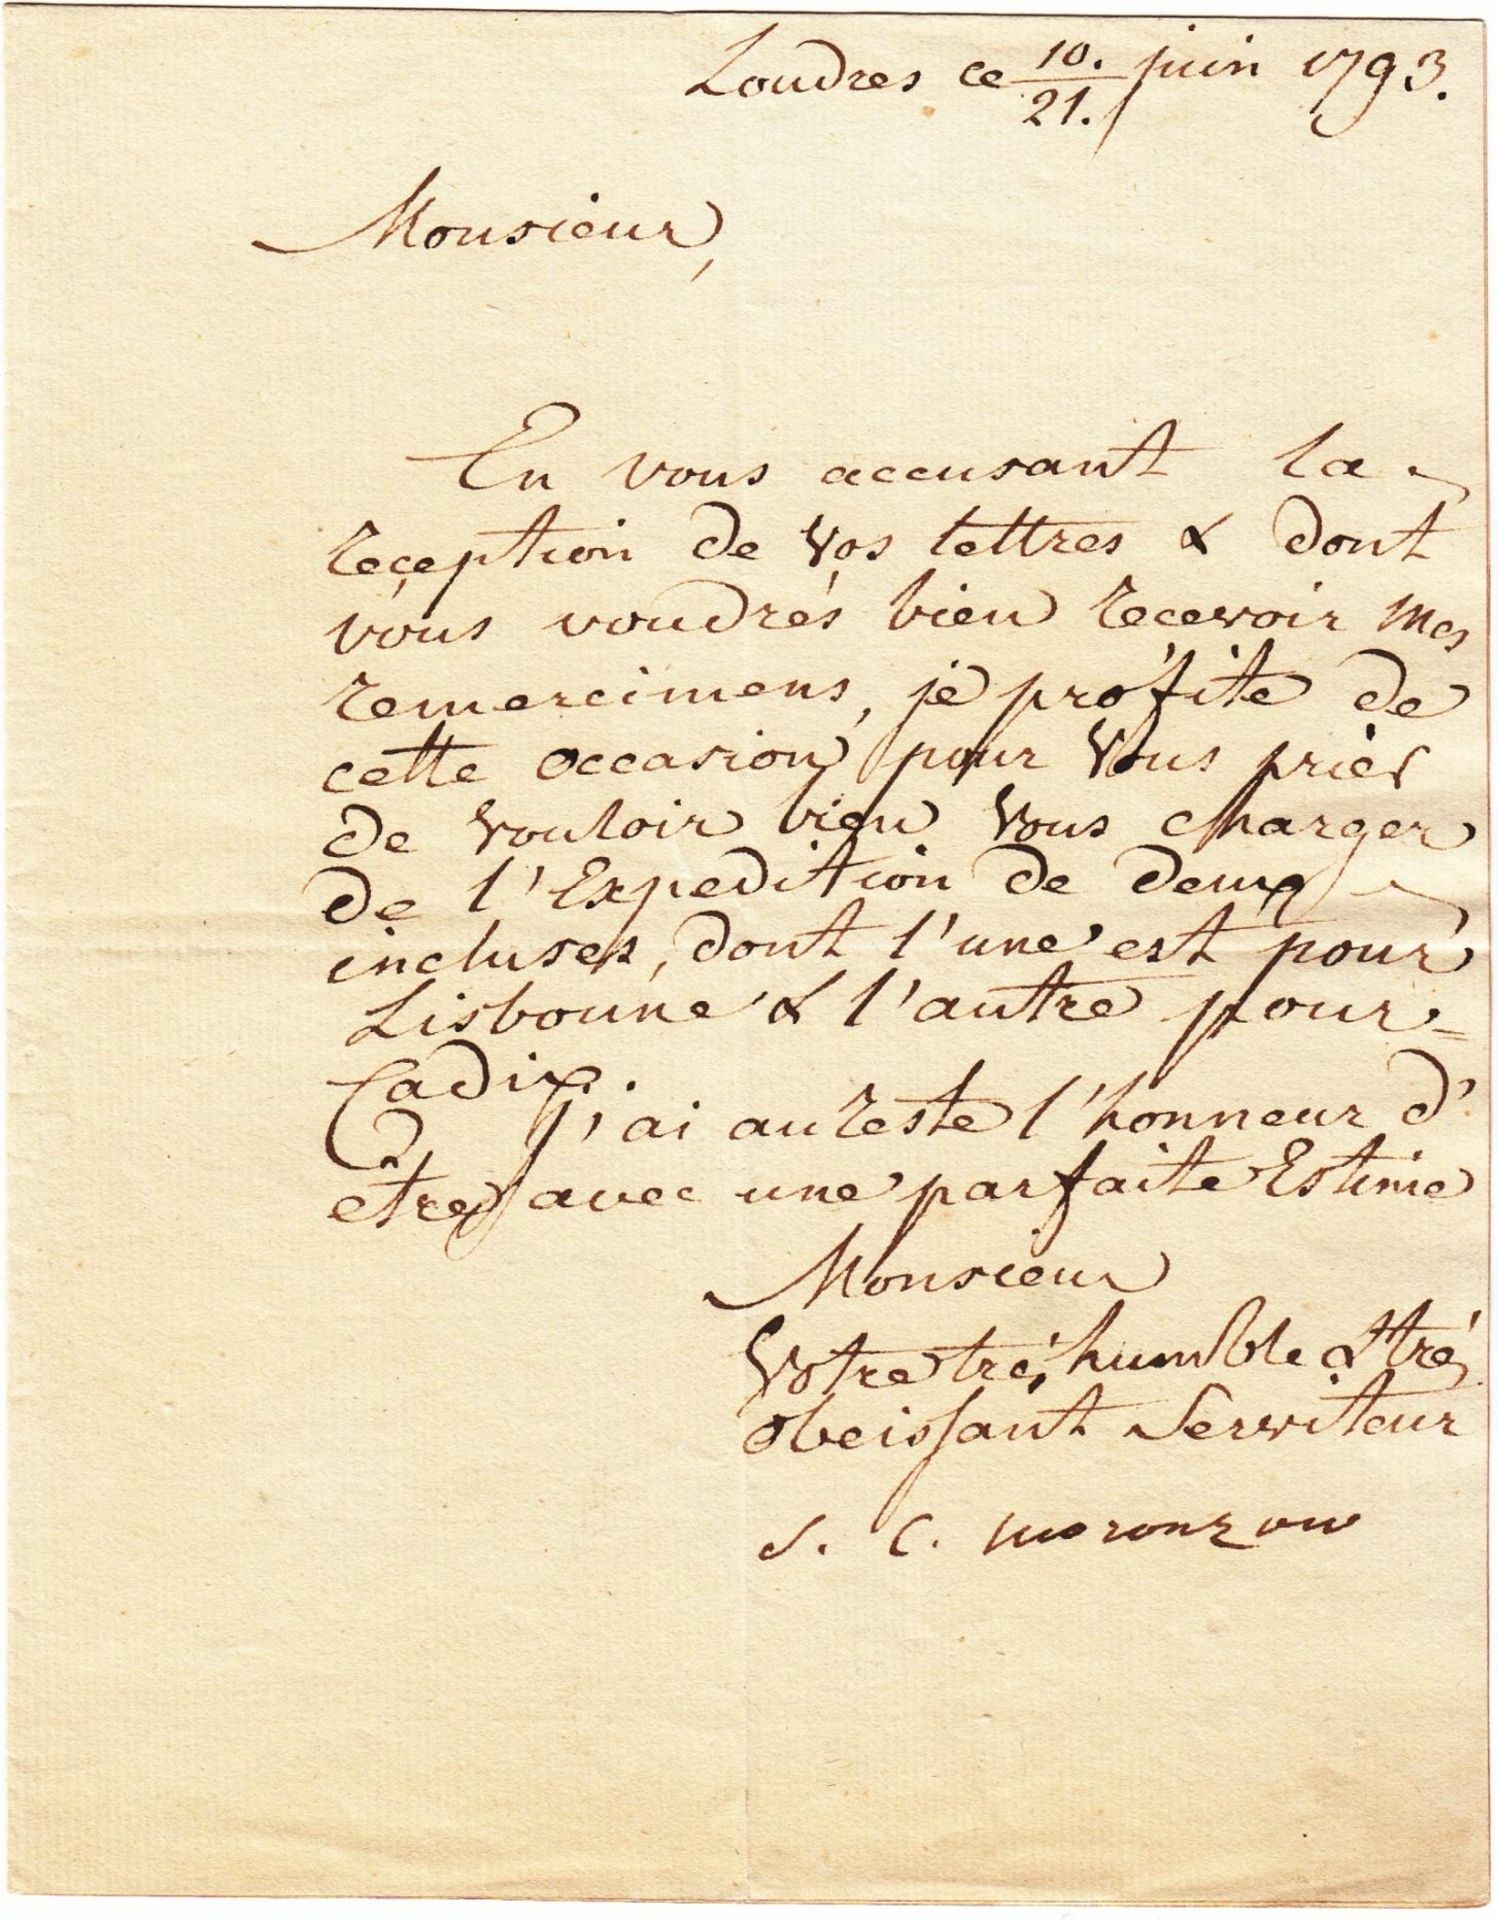 Londres ce 10./21. juin 1793.
Monsieur,
En vous accusant la
reçeption de vos lettres & dont
vous voudrés bien recevoir mes
remercimens, je profite de
cette occasion pour vous prier
de vouloir bien vous charger
de l'Expedition de deux
incluses, dont l'une est pour
Lisbonne & l'autre pour
Cadix.
J'ai au reste l'honneur d'
etre avec une parfaite Estime
Monsieur
Votre trés humble & trés
obeissant Serviteur
S. C. Woronzow